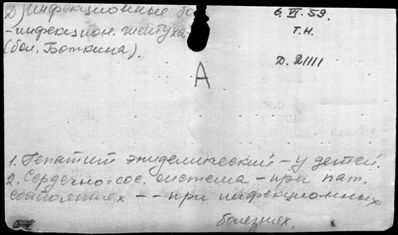 2) Инфекционные бо
6.VI.59.
- инфекцион. желтуха
Т.Н.
(бол. Боткина).
Д. 21111
А
1. Гепатит эпидемический - у детей.
2. Сердечно-сос. система - при пат.
состояниях -- при инфекционных
болезнях.